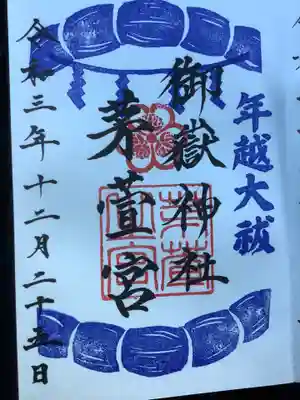 年越大祓
御嶽神社
茅萱宮
令和三年十二月二十五日